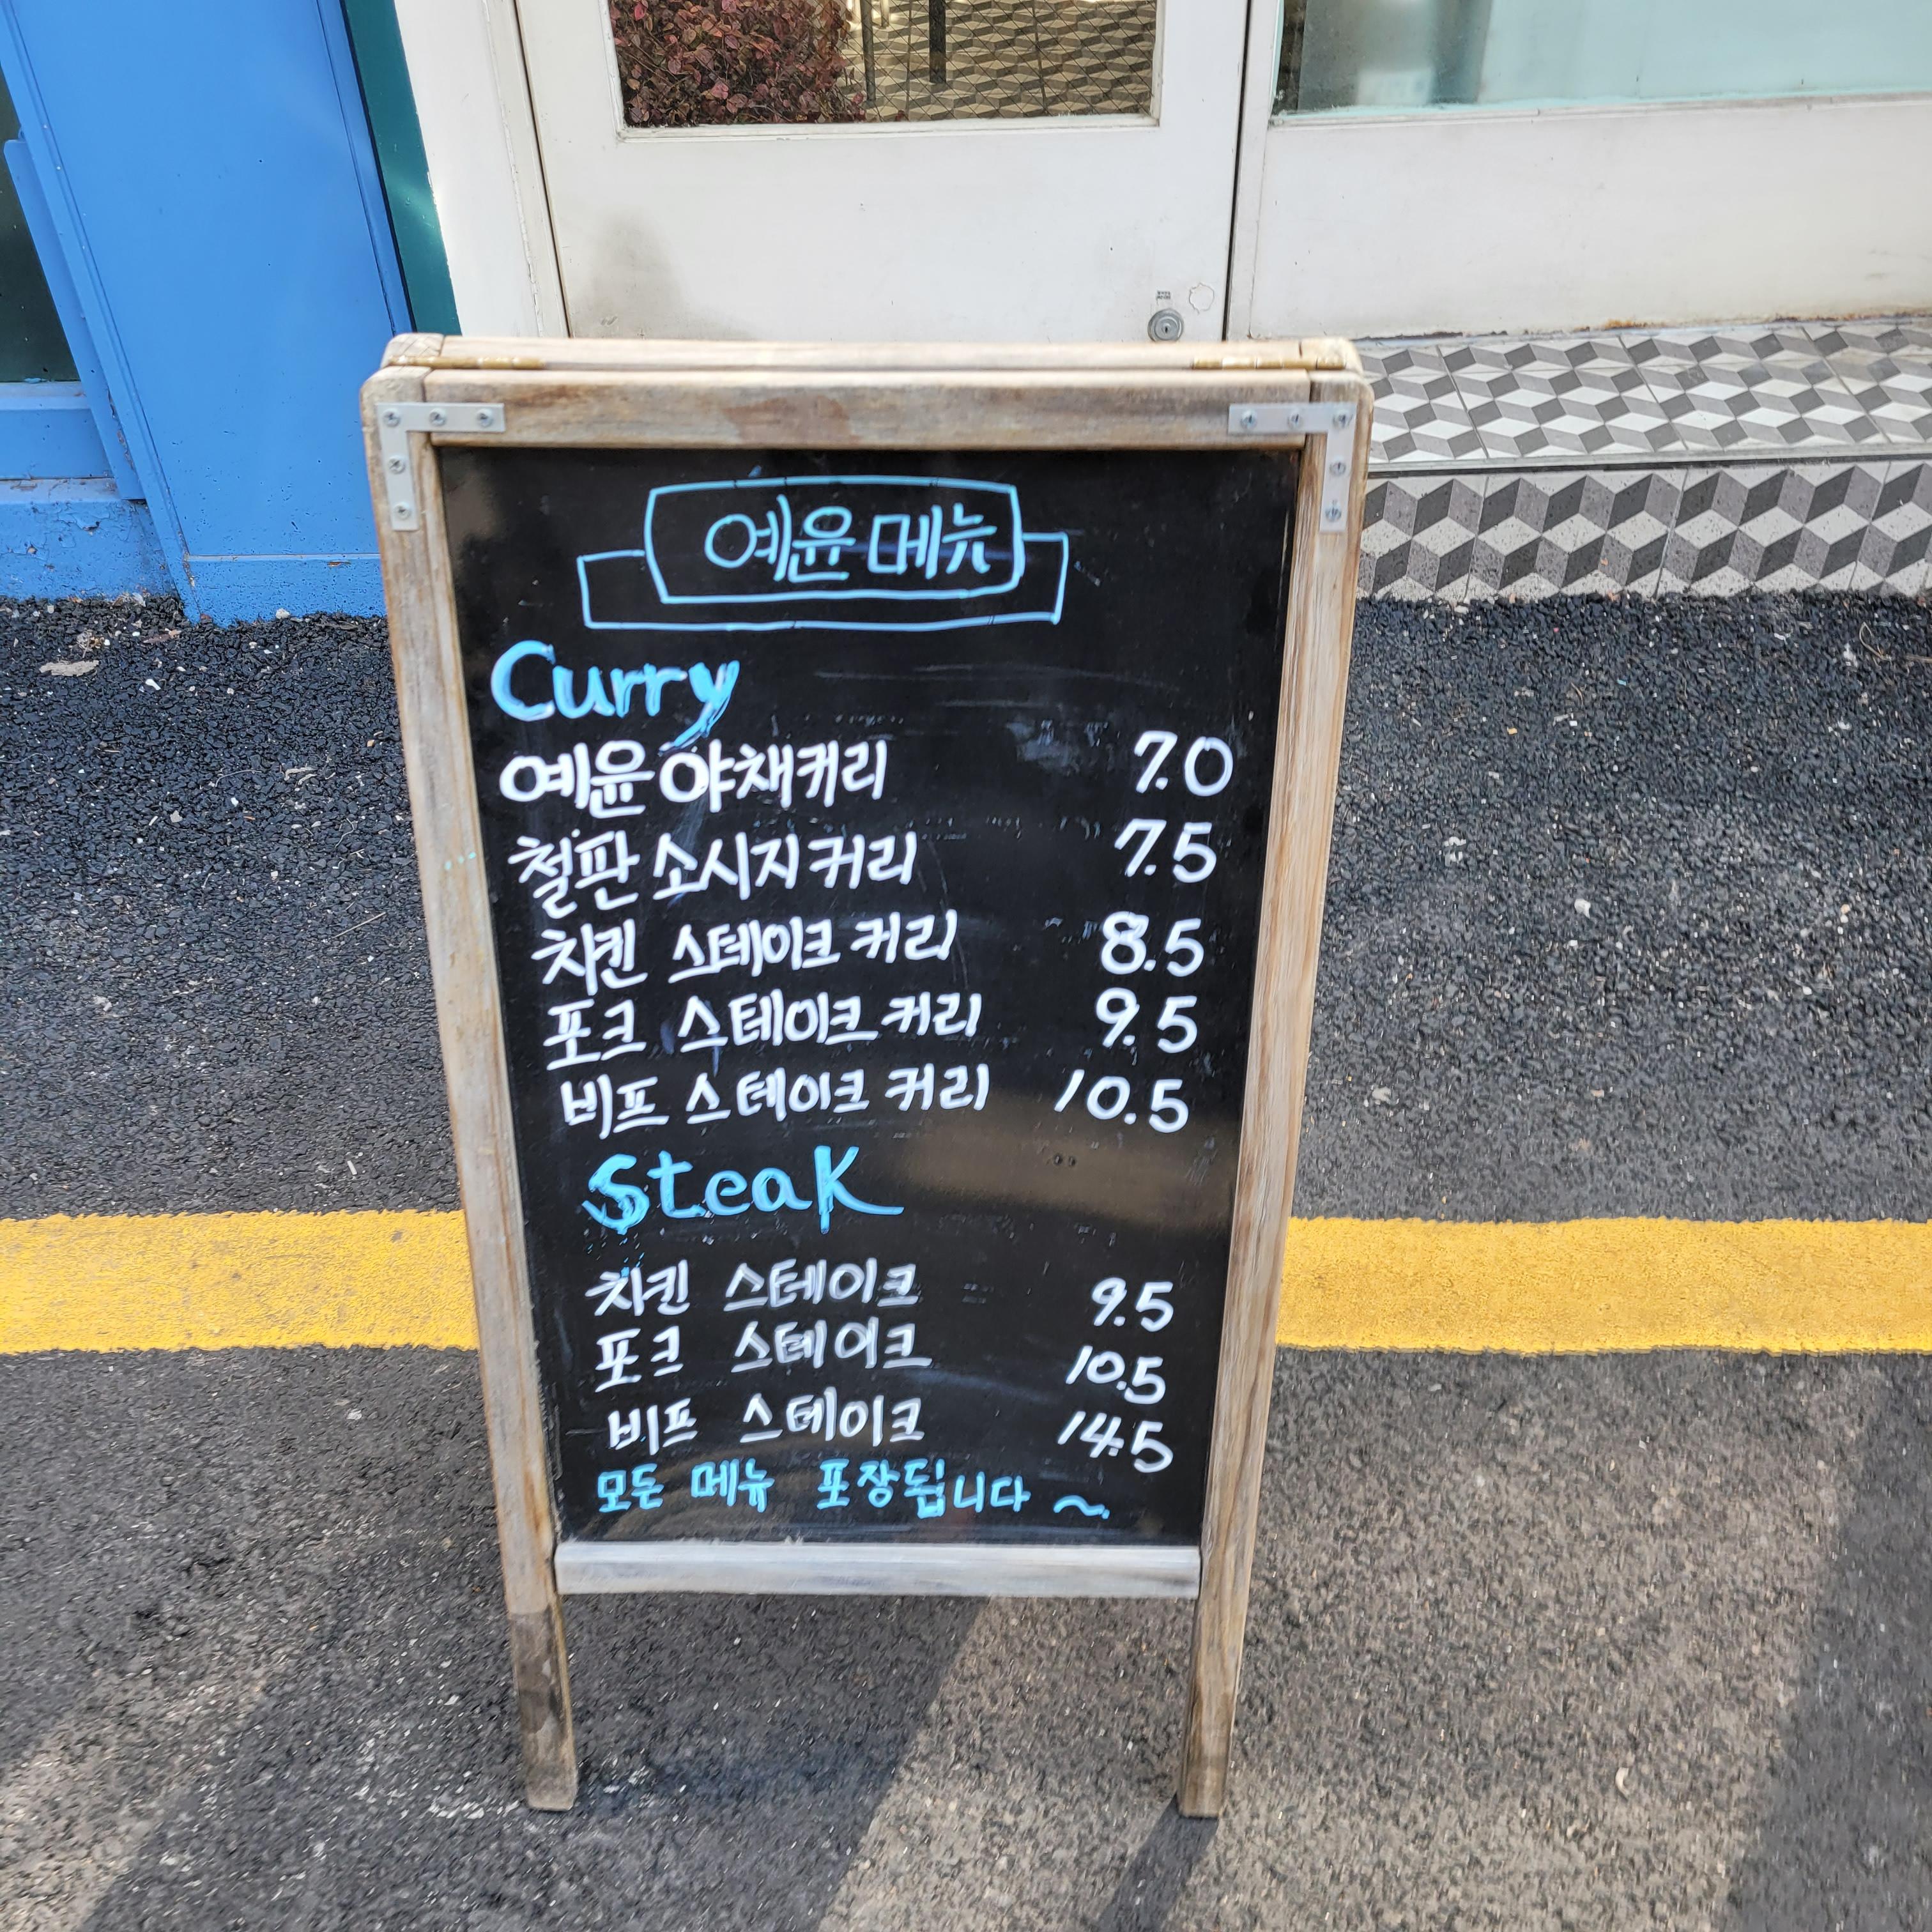 예윤 메뉴
Curry
예윤 야채커리 7.0
철판 소시지 커리 7.5
치킨 스테이크 커리 8.5
포크 스테이크 커리 9.5
비프 스테이크 커리 10.5
Steak
치킨 스테이크 9.5
포크 스테이크 10.5
비프 스테이크 14.5
모든 메뉴 포장됩니다 ~.